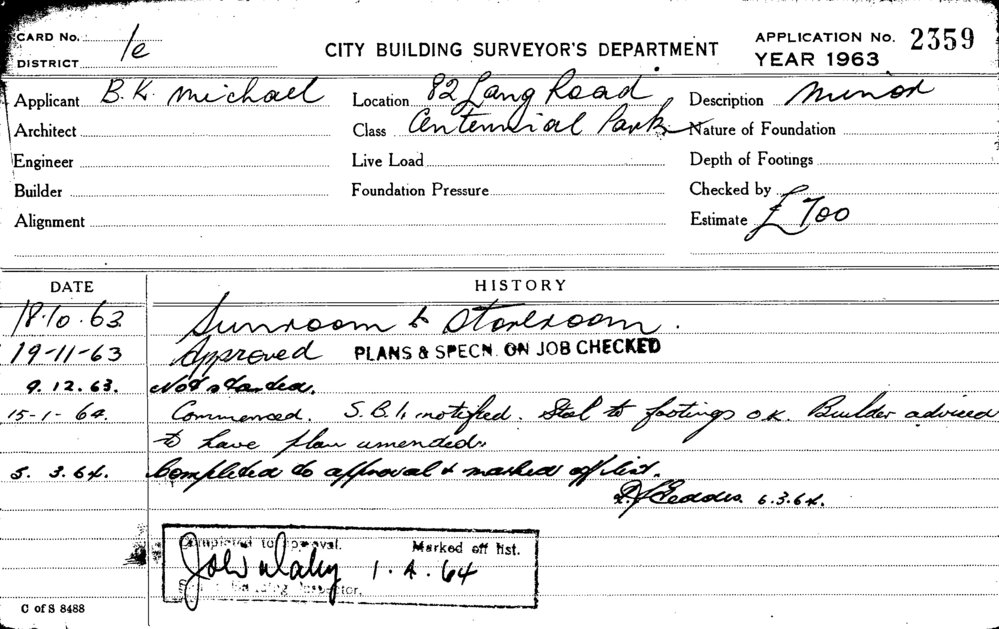 CARD No. 1e
DISTRICT
CITY BUILDING SURVEYOR'S DEPARTMENT
APPLICATION No. 2359
YEAR 1963
Applicant B.K. Michael
Location 82 Lang Road
Description Minor
Architect
Class Centennial Park
Nature of Foundation
Engineer
Live Load
Depth of Footings
Builder
Foundation Pressure
Checked by
Alignment
Estimate £700
DATE HISTORY
18.10.63 Sunroom & Storeroom.
19-11-63 Approved PLANS & SPECN. ON JOB CHECKED
9.12.63. Not started.
15-1-64. Commenced. S.B.I. notified. Steel to footings O.K. Builder advised
to have plan amended.
5.3.64. Completed to approval & marked off list.
Geddes. 6.3.64.
Completed to approval. Marked off list.
1.4.64
Building Inspector.
C of S 8488